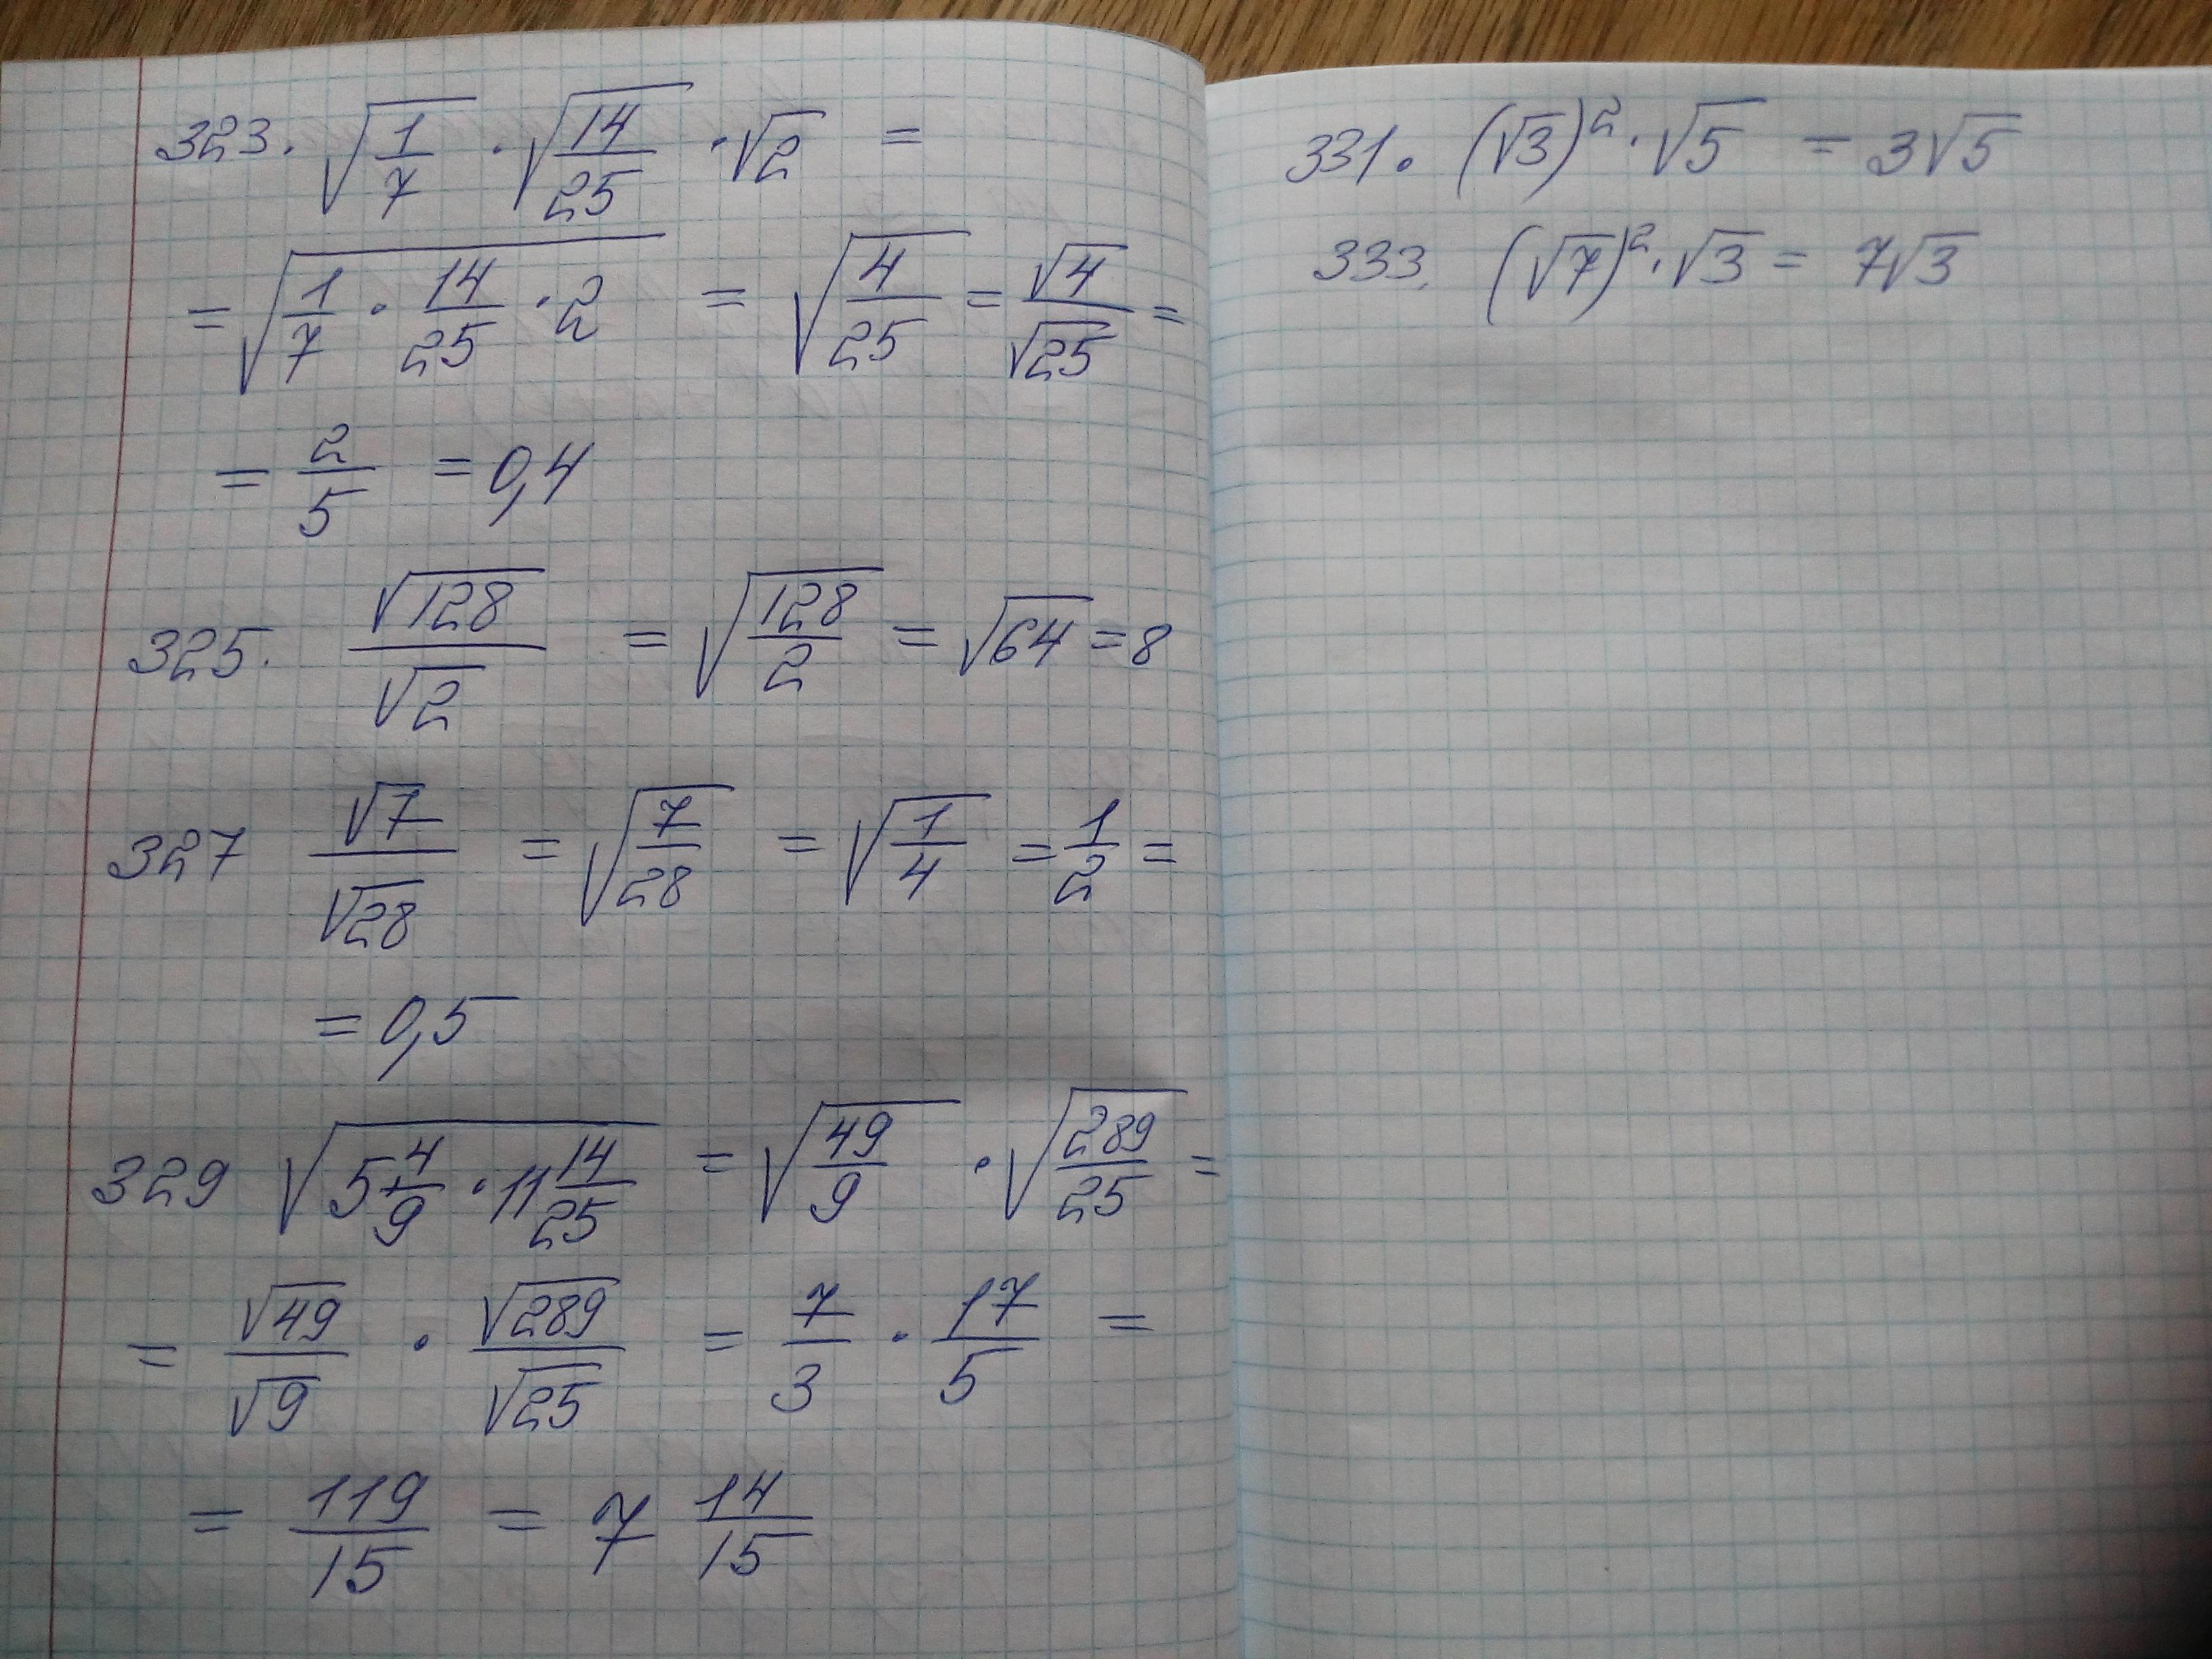 323. √(1/7) · √(14/25) · √2 =
= √(1/7 · 14/25 · 2) = √(4/25) = √4/√25 =
= 2/5 = 0,4
325. √128/√2 = √(128/2) = √64 = 8
327 √7/√28 = √(7/28) = √(1/4) = 1/2 =
= 0,5
329 √(5 4/9 · 11 14/25) = √(49/9) · √(289/25) =
= √49/√9 · √289/√25 = 7/3 · 17/5 =
= 119/15 = 7 14/15
331. (√3)² · √5 = 3√5
333. (√7)² · √3 = 7√3